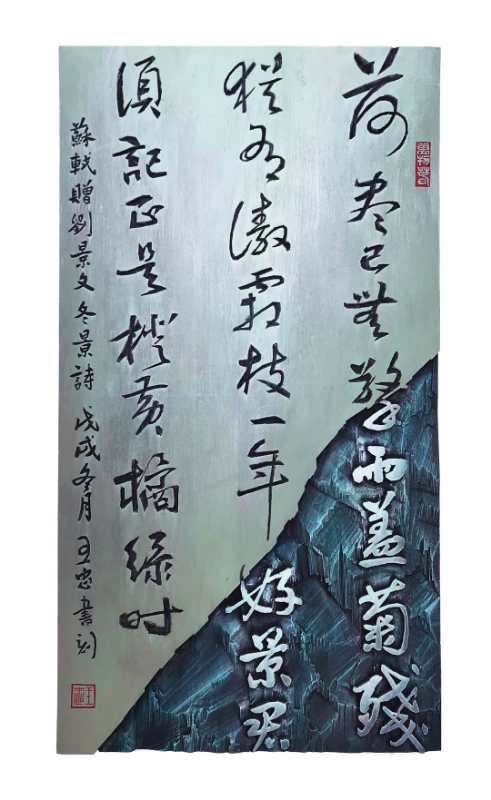 荷尽已無擎雨盖菊殘
猶有傲霜枝一年好景君
須記正是橙黄橘緑时
蘇軾贈劉景文冬景詩 戊戌冬月 王忠書刻